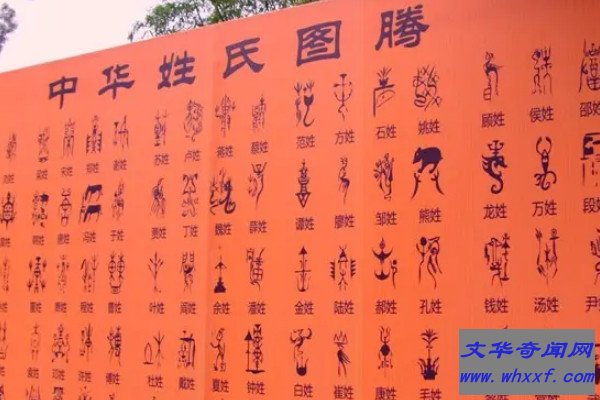 中华姓氏图腾
梁姓 宋姓 郑姓 谢姓 苏姓 卢姓 蒋姓 蔡姓 范姓 方姓 石姓 姚姓 顾姓 侯姓 邵姓
冯姓 于姓 贾姓 丁姓 魏姓 薛姓 谭姓 廖姓 邹姓 熊姓 龙姓 万姓 段姓
程姓 曹姓 叶姓 阎姓 余姓 潘姓 金姓 陆姓 郝姓 孔姓 钱姓 汤姓 尹姓
邓姓 许姓 傅姓 杜姓 戴姓 夏姓 钟姓 白姓 崔姓 康姓 毛姓
文华奇闻网
www.whxxf.com